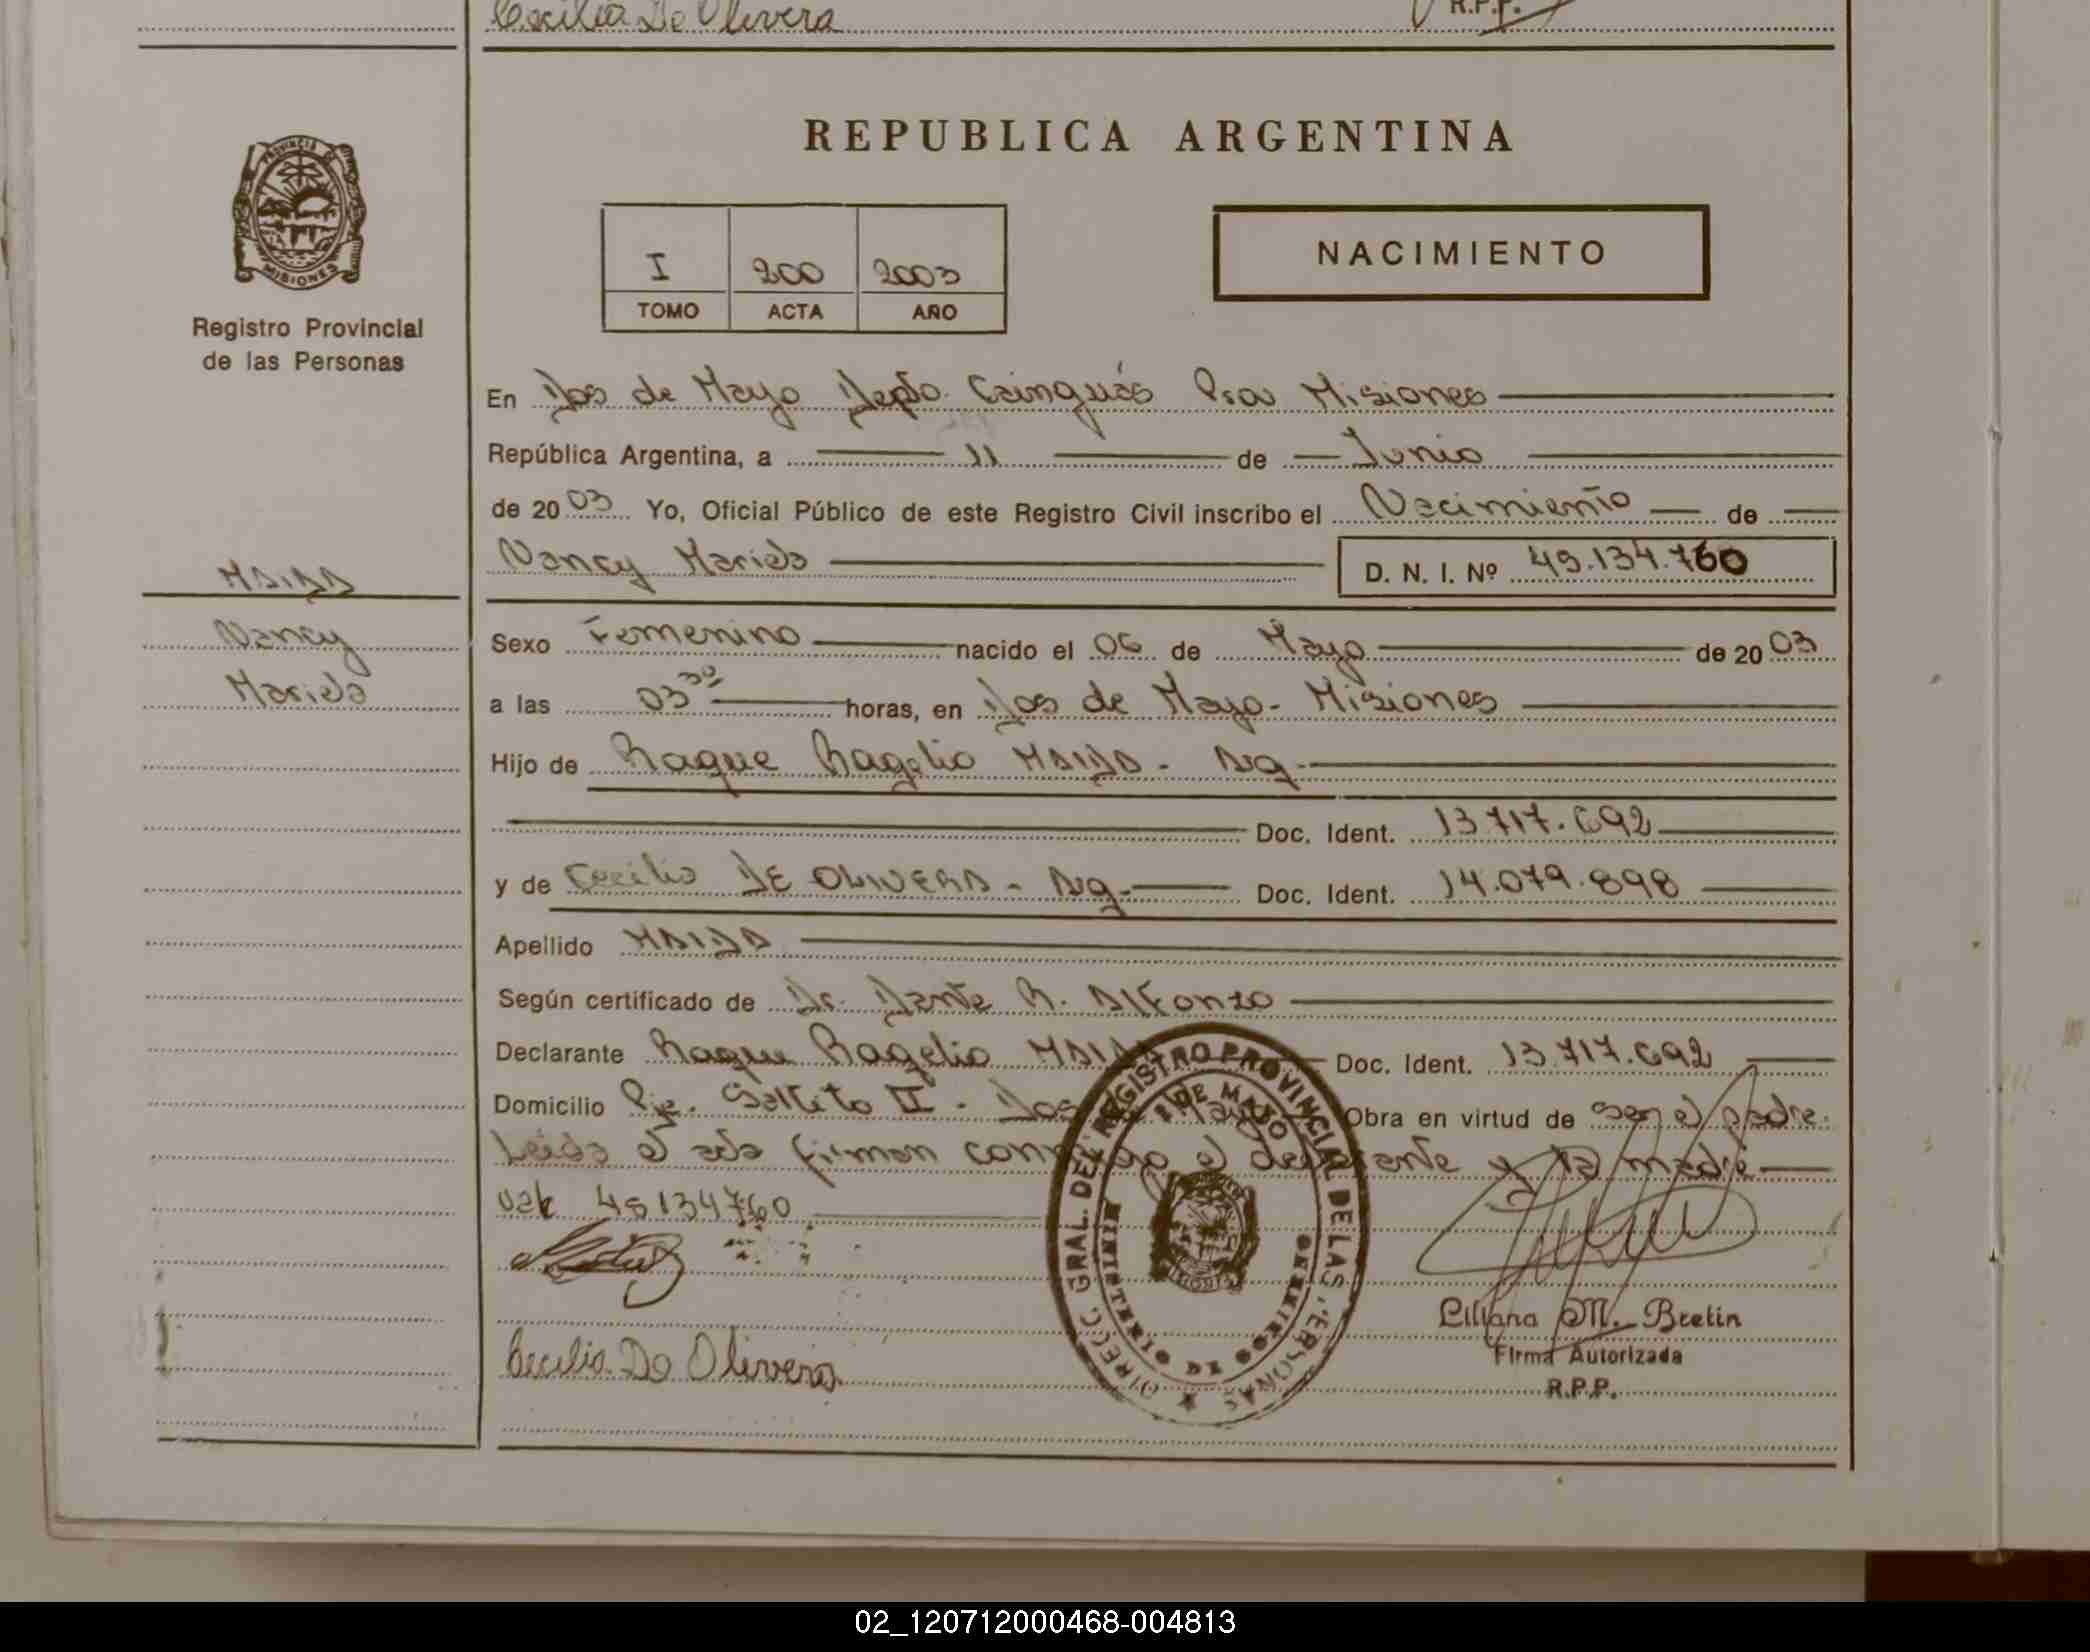 Cecilia De Olivera
R.P.P.
REPUBLICA ARGENTINA
PROVINCIA DE
MISIONES
Registro Provincial
de las Personas
I 200 2003
TOMO ACTA AÑO
NACIMIENTO
En Dos de Mayo Depto. Cainguás Pcia Misiones
República Argentina, a 11 de Junio
de 2003 Yo, Oficial Público de este Registro Civil inscribo el Nacimiento de
Nancy Mariela
D. N. I. Nº 45.134.760
MAIDA
Nancy
Mariela
Sexo Femenino nacido el 06 de Mayo de 2003
a las 03 30 horas, en Dos de Mayo - Misiones
Hijo de Roque Rogelio MAIDA - Arg
Doc. Ident. 13.717.692
y de Cecilia DE OLIVERA - Arg - Doc. Ident. 14.079.898
Apellido MAIDA
Según certificado de Dr. Dante R. Alfonzo
Declarante Roque Rogelio MAIDA Doc. Ident. 13.717.692
Domicilio Pje. Saltito II - Dos de Mayo Obra en virtud de ser el padre.
Leída el acta firman conmigo el declarante y la madre
Vale 45134760
DIRECC. GRAL. DEL REGISTRO PROVINCIAL DE LAS PERSONAS
DE MAYO
Cecilia De Olivera
Liliana M. Bretin
Firma Autorizada
R.P.P.
02_120712000468-004813